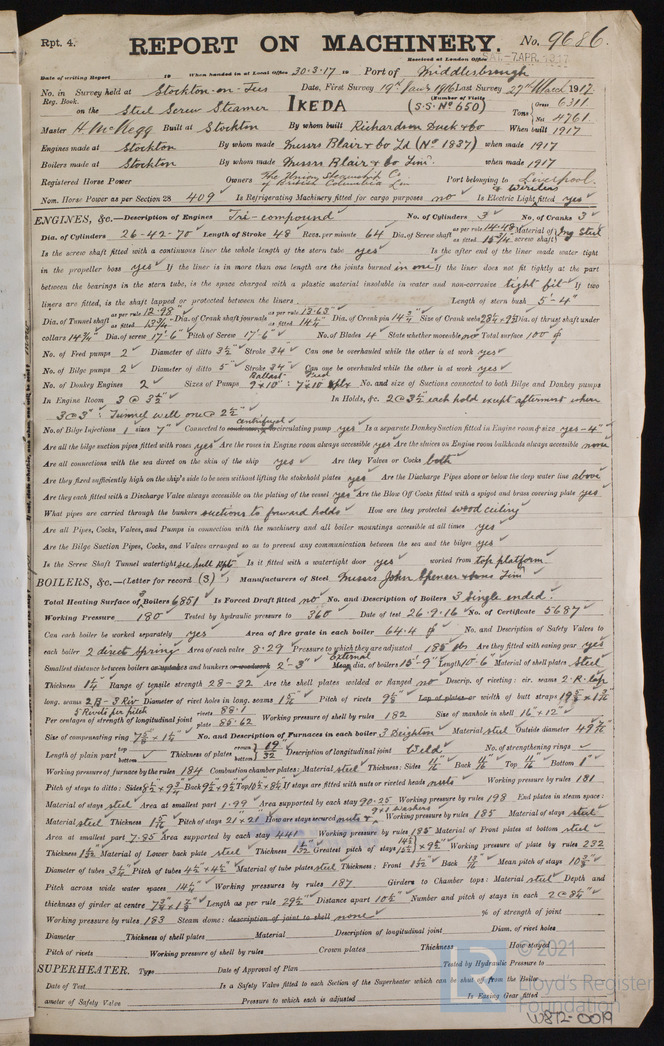 Rpt. 4.
REPORT ON MACHINERY. No. 9686.
Received at London Office SAT. -7 APR. 1917
Date of writing Report 19 When handed in at Local Office 30.3.17 19 Port of Middlesbrough
No. in Survey held at Stockton-on-Tees Date, First Survey 19th Jany 1916 Last Survey 27th March 1917
Reg. Book. (Number of Visits
on the Steel Screw Steamer IKEDA (S.S. No 650) Tons Gross 6311 Net 4761
Master H. McNegg Built at Stockton By whom built Richardson Duck & Co When built 1917
Engines made at Stockton By whom made Messrs Blair & Co Ld (No 1837) when made 1917
Boilers made at Stockton By whom made Messrs Blair & Co Lim. when made 1917
Registered Horse Power Owners The Union Steamship Co. of British Columbia Lim Port belonging to Liverpool
Nom. Horse Power as per Section 28 409 Is Refrigerating Machinery fitted for cargo purposes no Is Electric Light & Wireless fitted yes
ENGINES, &c.—Description of Engines Tri-compound No. of Cylinders 3 No. of Cranks 3
Dia. of Cylinders 26-42-70 Length of Stroke 48 Revs. per minute 64 Dia. of Screw shaft as per rule 14.48 as fitted 15 3/4 Material of screw shaft Ing Steel
Is the screw shaft fitted with a continuous liner the whole length of the stern tube yes Is the after end of the liner made water tight
in the propeller boss yes If the liner is in more than one length are the joints burned in one If the liner does not fit tightly at the part
between the bearings in the stern tube, is the space charged with a plastic material insoluble in water and non-corrosive tight fit If two
liners are fitted, is the shaft lapped or protected between the liners Length of stern bush 5'-4"
Dia. of Tunnel shaft as per rule 12.98" as fitted 13 3/4" Dia. of Crank shaft journals as per rule 13.63 as fitted 14 1/4" Dia. of Crank pin 14 3/4" Size of Crank webs 28 1/4 x 9 1/2 Dia. of thrust shaft under
collars 14 1/4" Dia. of screw 17'-6" Pitch of Screw 17'-6" No. of Blades 4 State whether moveable no Total surface 100 ф
No. of Feed pumps 2 Diameter of ditto 3 1/2" Stroke 34" Can one be overhauled while the other is at work yes
No. of Bilge pumps 2 Diameter of ditto 5" Stroke 34" Can one be overhauled while the other is at work yes
No. of Donkey Engines 2 Sizes of Pumps Ballast 9"x10" : Feed 7"x10 dplx No. and size of Suctions connected to both Bilge and Donkey pumps
In Engine Room 3 @ 3 1/2" In Holds, &c. 2 @ 3 1/2 each hold except aftermost where
3 @ 3" : Tunnel well one @ 2 1/2"
No. of Bilge Injections 1 sizes 7" Connected to centrifugal circulating pump yes Is a separate Donkey Suction fitted in Engine room & size yes - 4"
Are all the bilge suction pipes fitted with roses yes Are the roses in Engine room always accessible yes Are the sluices on Engine room bulkheads always accessible none
Are all connections with the sea direct on the skin of the ship yes Are they Valves or Cocks both
Are they fixed sufficiently high on the ship's side to be seen without lifting the stokehold plates yes Are the Discharge Pipes above or below the deep water line above
Are they each fitted with a Discharge Valve always accessible on the plating of the vessel yes Are the Blow Off Cocks fitted with a spigot and brass covering plate yes
What pipes are carried through the bunkers suctions to forward holds How are they protected wood ceiling
Are all Pipes, Cocks, Valves, and Pumps in connection with the machinery and all boiler mountings accessible at all times yes
Are the Bilge Suction Pipes, Cocks, and Valves arranged so as to prevent any communication between the sea and the bilges yes
Is the Screw Shaft Tunnel watertight see hull Rpt Is it fitted with a watertight door yes worked from top platform
BOILERS, &c.—(Letter for record (S) Manufacturers of Steel Messrs John Spencer & Sons Lim
Total Heating Surface of 3 Boilers 6851 Is Forced Draft fitted no No. and Description of Boilers 3 Single ended
Working Pressure 180 Tested by hydraulic pressure to 360 Date of test 26.9.16 No. of Certificate 5687
Can each boiler be worked separately yes Area of fire grate in each boiler 64.4 ф No. and Description of Safety Valves to
each boiler 2 direct spring Area of each valve 8.29 Pressure to which they are adjusted 185 lbs Are they fitted with easing gear yes
Smallest distance between boilers or uptakes and bunkers or woodwork 2'-3" External Mean dia. of boilers 15'-9" Length 10'-6" Material of shell plates Steel
Thickness 1 1/4 Range of tensile strength 28-32 Are the shell plates welded or flanged no Descrip. of riveting: cir. seams 2.R.Lap
long. seams 2 B-3 Riv Diameter of rivet holes in long. seams Pitch of rivets Lap of plates or width of butt straps
5 Rivets per pitch
Per centages of strength of longitudinal joint rivets 88.1 plate 85.62 Working pressure of shell by rules 182 Size of manhole in shell 16"x12"
Size of compensating ring No. and Description of Furnaces in each boiler 3 Deighton Material steel Outside diameter
Length of plain part top bottom Thickness of plates crown bottom 19/32 Description of longitudinal joint Weld No. of strengthening rings
Working pressure of furnace by the rules 184 Combustion chamber plates: Material steel Thickness: Sides Back Top Bottom 1"
Pitch of stays to ditto: Sides Back Top If stays are fitted with nuts or riveted heads nuts Working pressure by rules 181
Material of stays steel Area at smallest part 1.99 Area supported by each stay 90.25 Working pressure by rules 198 End plates in steam space:
Material steel Thickness Pitch of stays 21 x 21 How are stays secured nuts & washers Working pressure by rules 185 Material of stays steel
Area at smallest part 7.85 Area supported by each stay 441 Working pressure by rules 185 Material of Front plates at bottom steel
Thickness Material of Lower back plate steel Thickness Greatest pitch of stays Working pressure of plate by rules 232
Diameter of tubes 3 1/4 Pitch of tubes Material of tube plates steel Thickness: Front Back Mean pitch of stays
Pitch across wide water spaces 14 1/4 Working pressures by rules 187 Girders to Chamber tops: Material steel Depth and
thickness of girder at centre Length as per rule 29 1/2 Distance apart 10 1/2 Number and pitch of stays in each 2 @ 8 3/4"
Working pressure by rules 183 Steam dome: description of joint to shell none % of strength of joint
Diameter Thickness of shell plates Material Description of longitudinal joint Diam. of rivet holes
Pitch of rivets Working pressure of shell by rules Crown plates Thickness How stayed
SUPERHEATER. Type Date of Approval of Plan Tested by Hydraulic Pressure to
Date of Test Is a Safety Valve fitted to each Section of the Superheater which can be shut off from the Boiler
ameter of Safety Valve Pressure to which each is adjusted Is Easing Gear fitted
© 2021
Lloyd's Register
Foundation
W872-0019